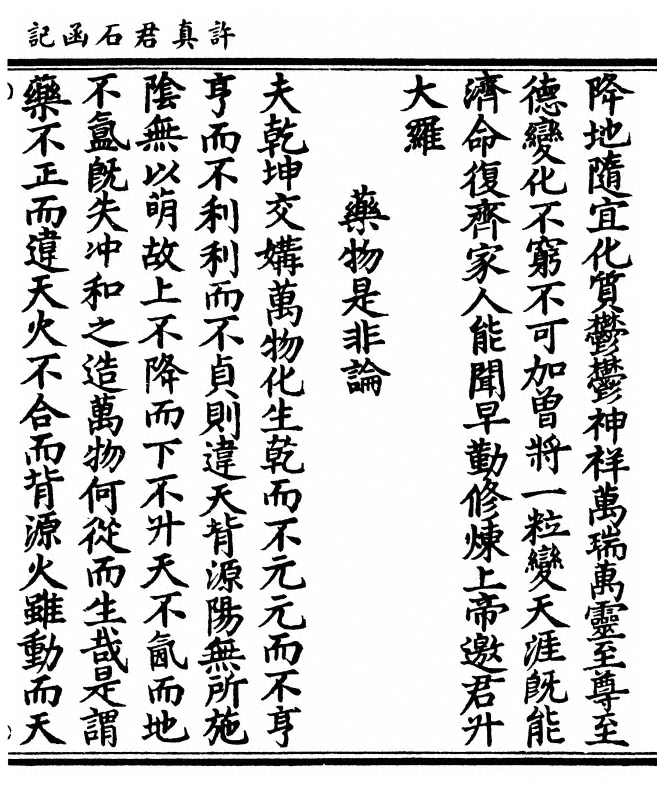 許真君石函記
降地隨宜化質鬱鬱神祥萬瑞萬靈至尊至
德變化不窮不可加曾將一粒變天涯旣能
濟命復齊家人能聞早勤修煉上帝邀君升
大羅
藥物是非論
夫乾坤交媾萬物化生乾而不元元而不亨
亨而不利利而不貞則違天背源陽無所施
陰無以萌故上不降而下不升天不氤而地
不氳旣失冲和之造萬物何從而生哉是謂
藥不正而違天火不合而背源火雖動而天